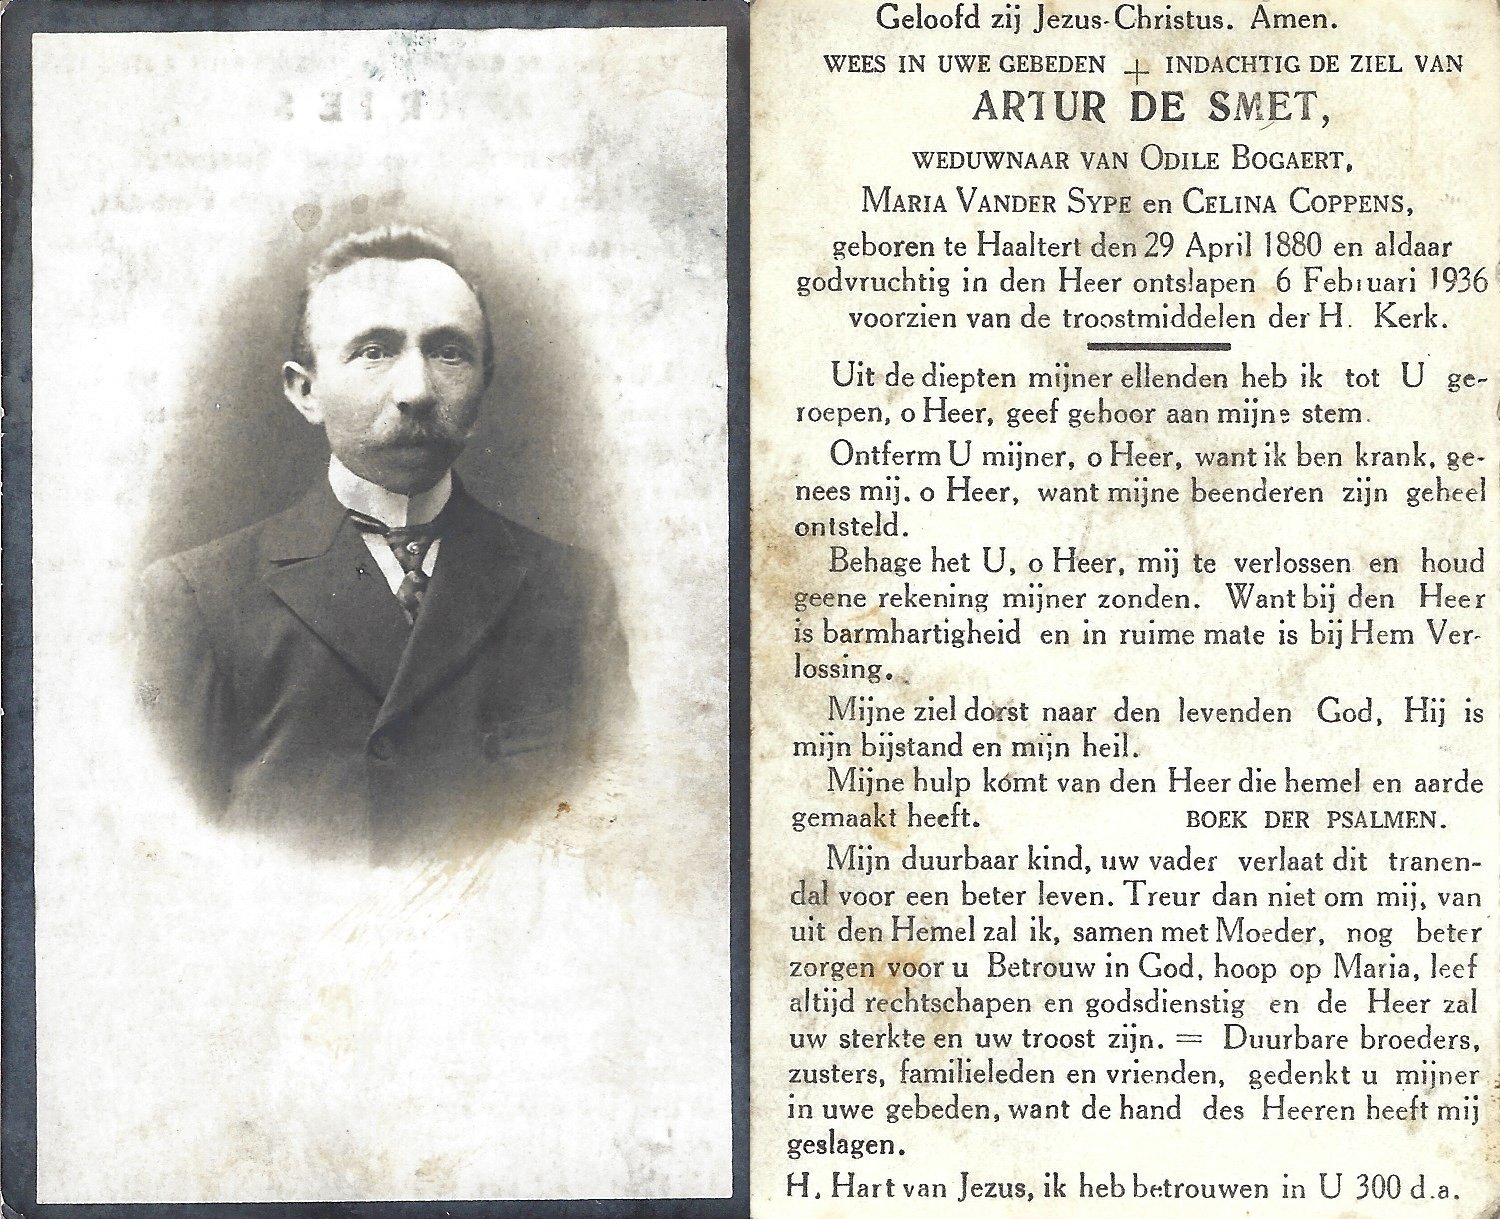 Geloofd zij Jezus-Christus. Amen.
WEES IN UWE GEBEDEN + INDACHTIG DE ZIEL VAN
ARTUR DE SMET,
WEDUWNAAR VAN ODILE BOGAERT,
MARIA VANDER SYPE en CELINA COPPENS,
geboren te Haaltert den 29 April 1880 en aldaar
godvruchtig in den Heer ontslapen 6 Februari 1936
voorzien van de troostmiddelen der H. Kerk.
Uit de diepten mijner ellenden heb ik tot U ge-
roepen, o Heer, geef gehoor aan mijne stem.
Ontferm U mijner, o Heer, want ik ben krank, ge-
nees mij. o Heer, want mijne beenderen zijn geheel
ontsteld.
Behage het U, o Heer, mij te verlossen en houd
geene rekening mijner zonden. Want bij den Heer
is barmhartigheid en in ruime mate is bij Hem Ver-
lossing.
Mijne ziel dorst naar den levenden God, Hij is
mijn bijstand en mijn heil.
Mijne hulp komt van den Heer die hemel en aarde
gemaakt heeft. BOEK DER PSALMEN.
Mijn duurbaar kind, uw vader verlaat dit tranen-
dal voor een beter leven. Treur dan niet om mij, van
uit den Hemel zal ik, samen met Moeder, nog beter
zorgen voor u Betrouw in God, hoop op Maria, leef
altijd rechtschapen en godsdienstig en de Heer zal
uw sterkte en uw troost zijn. = Duurbare broeders,
zusters, familieleden en vrienden, gedenkt u mijner
in uwe gebeden, want de hand des Heeren heeft mij
geslagen.
H. Hart van Jezus, ik heb betrouwen in U 300 d.a.